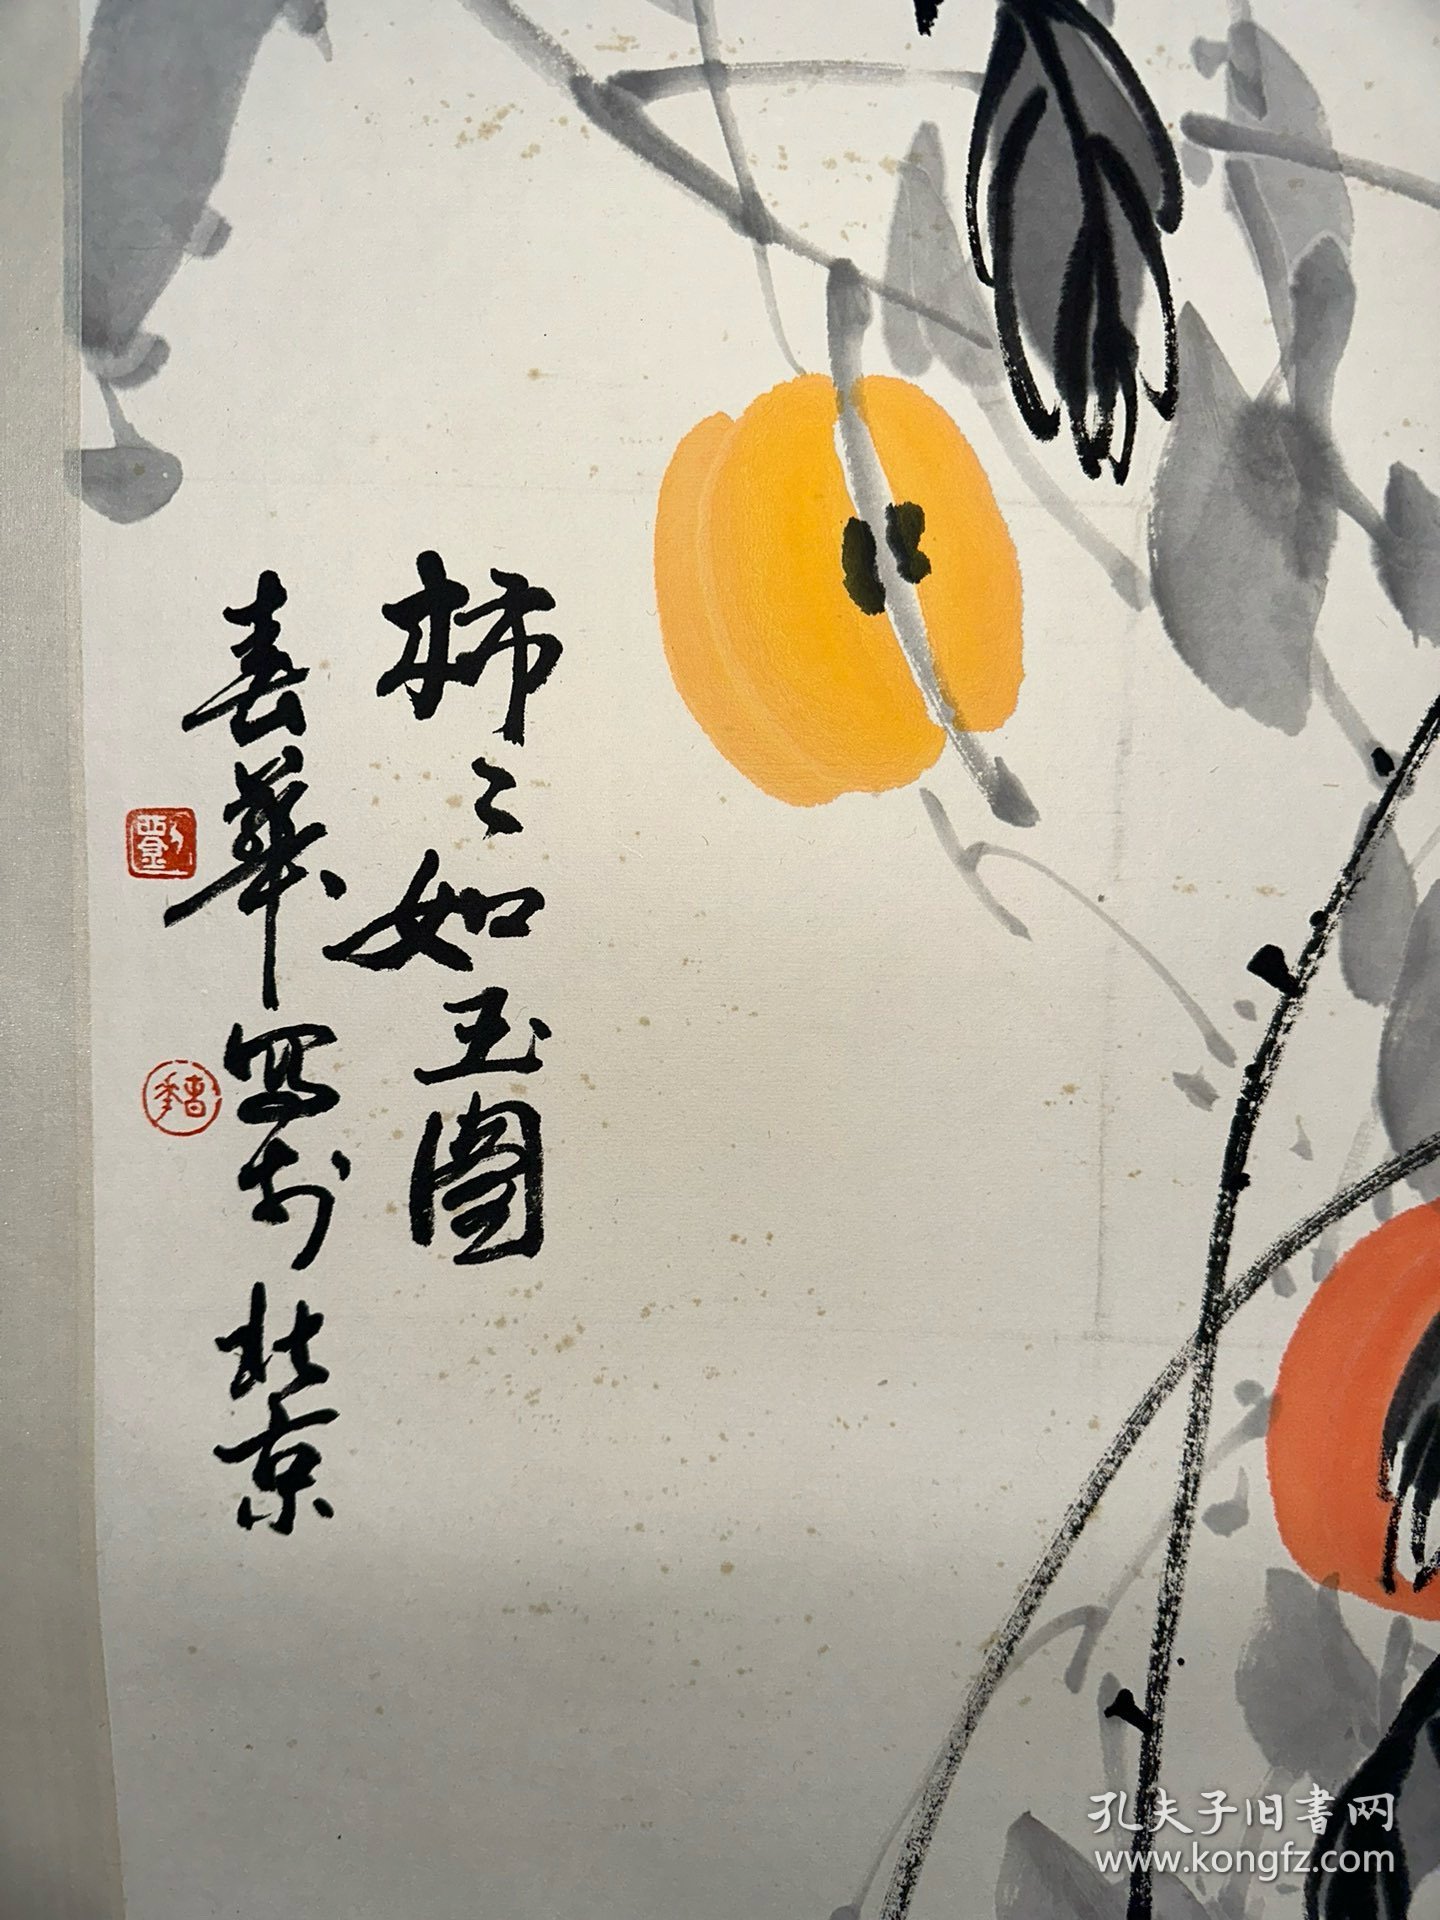 柿〻如玉圖
喜華寫於北京
劉
孔夫子旧書网
www.kongfz.com